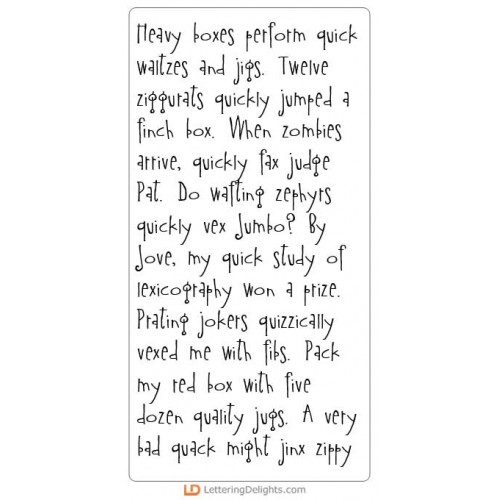 Heavy boxes perform quick
waltzes and jigs. Twelve
ziggurats quickly jumped a
finch box. When zombies
arrive, quickly fax judge
Pat. Do wafting zephyrs
quickly vex Jumbo? By
Jove, my quick study of
lexicography won a prize.
Prating jokers quizzically
vexed me with fibs. Pack
my red box with five
dozen quality jugs. A very
bad quack might jinx zippy
LD LetteringDelights.com